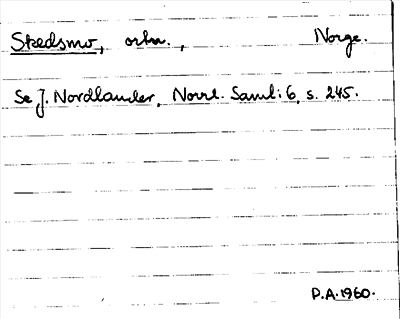 Skedsmo, ortn., Norge.
Se J. Nordlander, Norrl. Saml: 6, s. 245.
P.A. 1960.